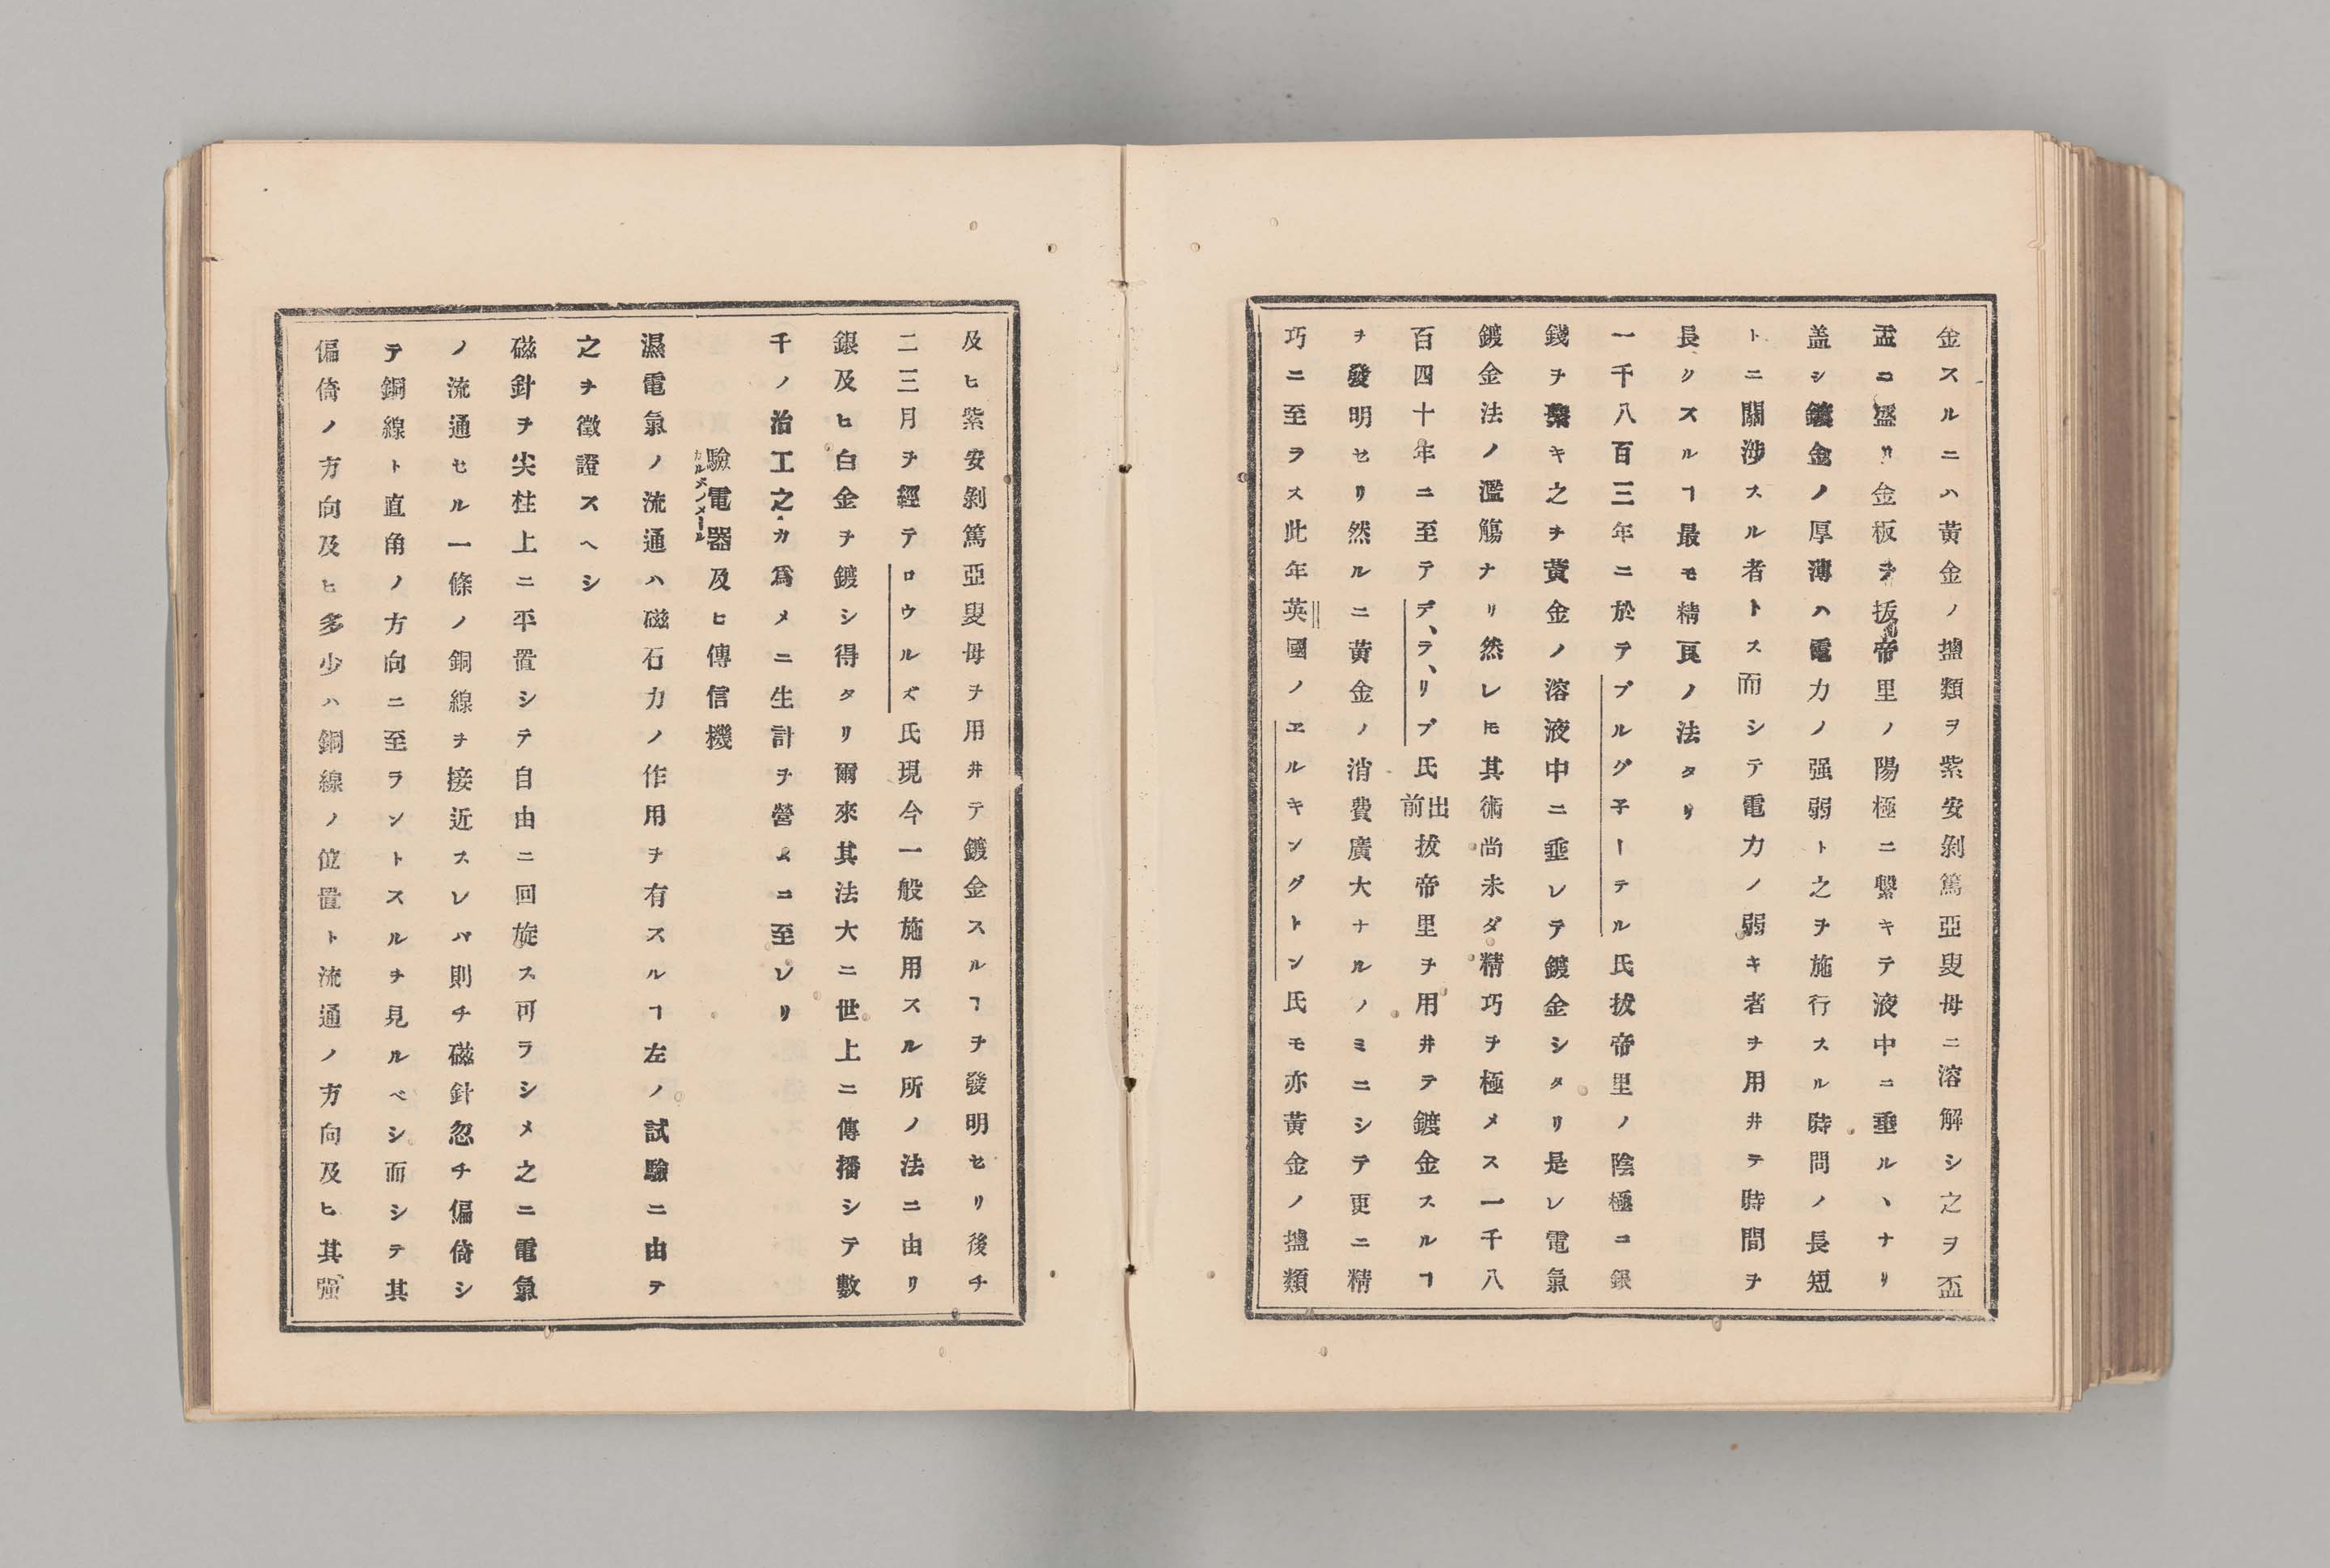 金スルニハ黃金ノ鹽類ヲ紫安剝篤亞叟母ニ溶解シ之ヲ盃
盂ニ盛リ金板ヲ拔帝里ノ陽極ニ繫キテ液中ニ垂ルヽナリ
盖シ鍍金ノ厚薄ハ電力ノ强弱ト之ヲ施行スル時間ノ長短
トニ關涉スル者トス而シテ電力ノ弱キ者ヲ用井テ時間ヲ
長クスルヿ最モ精良ノ法タリ
一千八百三年ニ於テブルグ子ーテル氏拔帝里ノ陰極ニ銀
錢ヲ繫キ之ヲ黃金ノ溶液中ニ垂レテ鍍金シタリ是レ電氣
鍍金法ノ濫觴ナリ然レ𪜈其術尚未ダ精巧ヲ極メス一千八
百四十年ニ至テデ、ラ、リブ氏前出拔帝里ヲ用井テ鍍金スルヿ
ヲ發明セリ然ルニ黃金ノ消費廣大ナルノミニシテ更ニ精
巧ニ至ラス此年英國ノヱルキングトン氏モ亦黃金ノ鹽類
及ヒ紫安剝篤亞叟母ヲ用井テ鍍金スルヿヲ發明セリ後チ
二三月ヲ經テロウルズ氏現今一般施用スル所ノ法ニ由リ
銀及ヒ白金ヲ鍍シ得タリ爾來其法大ニ世上ニ傳播シテ數
千ノ治工之カ爲メニ生計ヲ營ムニ至レリ
驗電器及ヒ傳信機
濕電氣ノ流通ハ磁石力ノ作用ヲ有スルヿ左ノ試驗ニ由テ
之ヲ徵證スヘシ
磁針ヲ尖柱上ニ平置シテ自由ニ回旋ス可ラシメ之ニ電氣
ノ流通セル一條ノ銅線ヲ接近スレバ則チ磁針忽チ偏倚シ
テ銅線ト直角ノ方向ニ至ラントスルヲ見ルベシ而シテ其
偏倚ノ方向及ヒ多少ハ銅線ノ位置ト流通ノ方向及ヒ其强